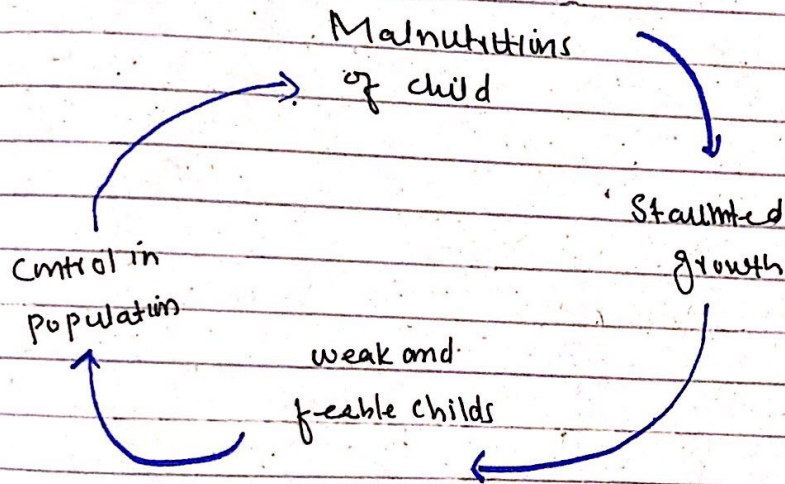 Malnutritions
of child
Staunted
growth
weak and
feeable childs
Control in
population